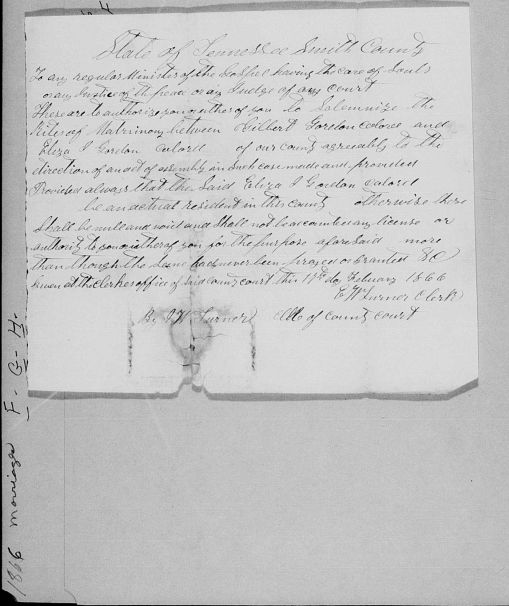 State of Tennessee Smith County
To any regular Minister of the Gospel having the care of Souls
or any Justice of the peace or any Judge of any court
These are to authorize you or either of you to Solemnize the
Rites of Matrimony between Gilbert Gordon Colored and
Eliza J Gordon Colored of our county agreeably to the
direction of an act of assembly in such case made and provided
Provided always that the Said Eliza J Gordon Colored
be an actual resident in this county otherwise these
Shall be null and void and Shall not be accounted any license or
authority to you or either of you for the purpose aforesaid more
than though the Same had never been prayed or Granted &c
Given at the Clerks office of Said County Court this day February 1866
Turner Clerk
By J W Turner of County Court
1866 marriages F. G-H.